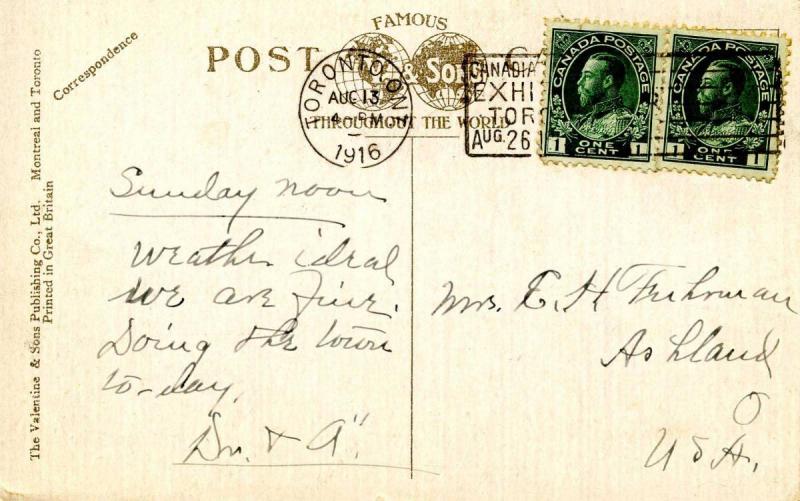 FAMOUS
POST
& Sons
THROUGHOUT THE WORLD
Correspondence
The Valentine & Sons Publishing Co., Ltd. Montreal and Toronto
Printed in Great Britain
TORONTO ON
AUG 13
4 - PM
1916
CANADIA
EXHI
TOR
AUG. 26
CANADA POSTAGE
1 ONE CENT 1
CANADA POSTAGE
1 ONE CENT 1
Sunday noon
Weather ideal
We are fine.
Doing the town
to-day.
Dr. & A"
Mrs. E. H. Fuhrman
Ashland
O
USA.